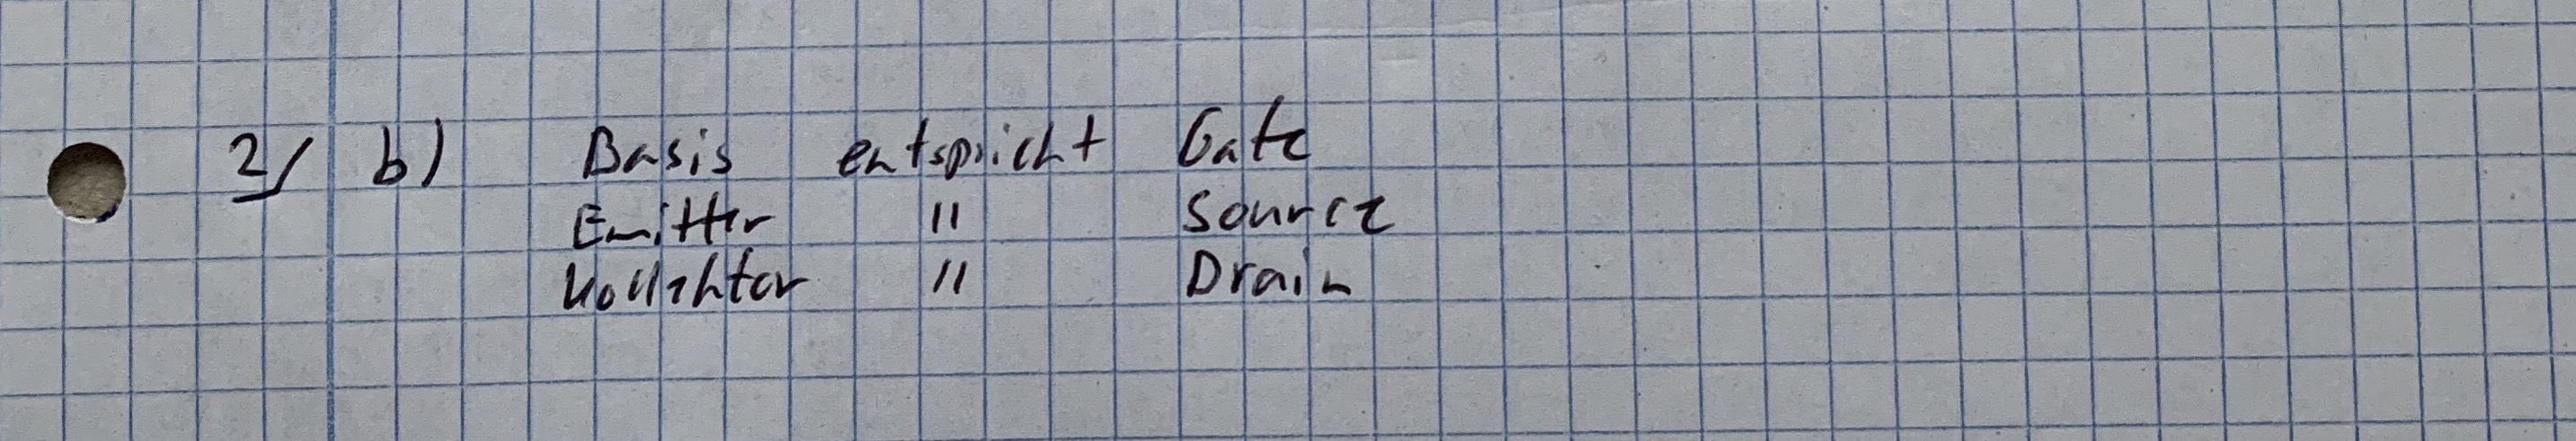 2/ b) Basis entspricht Gate
Emitter " Source
Kollektor " Drain